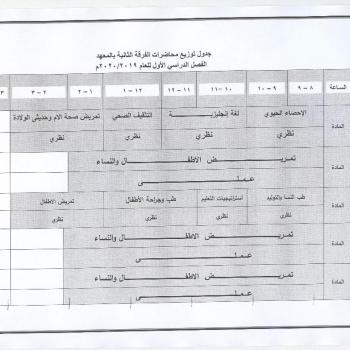 جدول توزيع محاضرات الفرقة الثانية بالمعهد
الفصل الدراسي الأول للعام ٢٠٢٠/٢٠١٩م
الساعة ٨ – ٩ ٩ – ١٠ ١٠ – ١١ ١١ – ١٢ ١٢ – ١ ١ – ٢ ٢ – ٣ ٣
المادة الإحصاء الحيوي لغة إنجليزيـــة التثقيف الصحي تمريض صحة الام وحديثى الولادة
نظري نظري نظري نظري
المادة تمريـــض الاطفـــال والنساء
عملـــي
المادة طب النسا والتوليد استراتيجيات التعليم طب وجراحة الأطفال تمريض الاطفال
نظري نظري نظري نظري
المادة تمريـــض الاطفـــال والنساء
عملـــي
المادة تمريـــض الاطفـــال والنساء
عملـــي